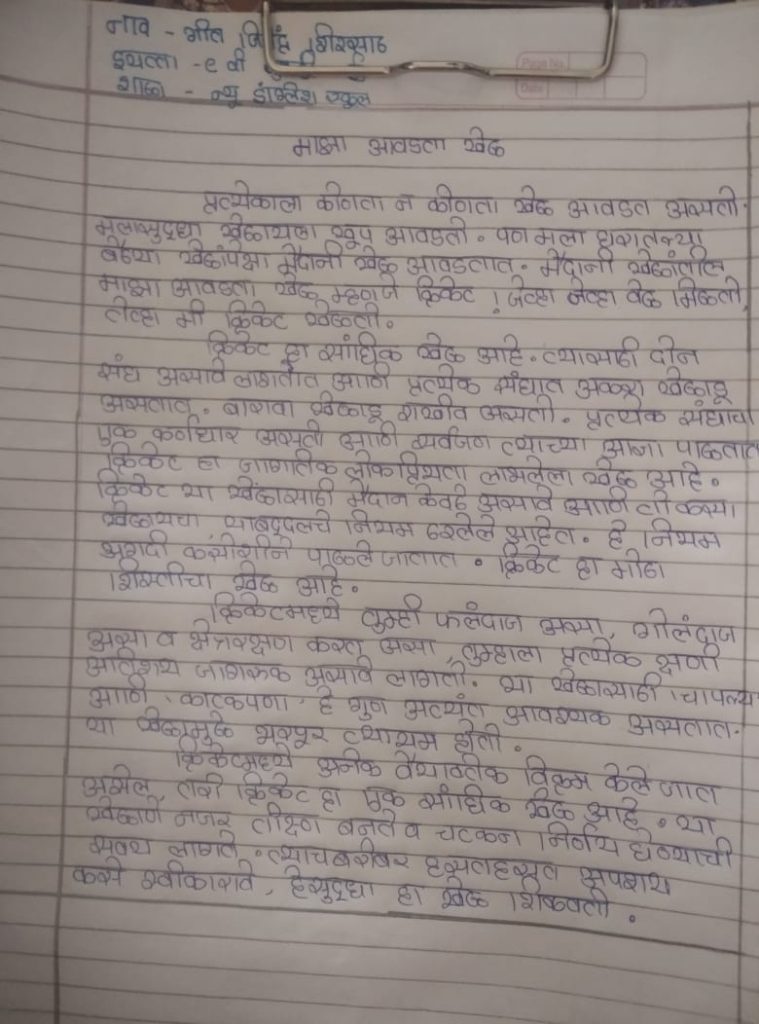 नाव - गीत शिरसाठ
इयत्ता - ९ वी
शाळा - न्यू इंग्लिश स्कूल
Page No.
Date
माझा आवडता खेळ
प्रत्येकाला कोणता न कोणता खेळ आवडत असतो.
मलासुद्धा खेळायला खूप आवडतो. पण मला घरातल्या
बैठ्या खेळांपेक्षा मैदानी खेळ आवडतात. मैदानी खेळांतील
माझा आवडता खेळ म्हणजे क्रिकेट ! जेव्हा जेव्हा वेळ मिळतो,
तेव्हा मी क्रिकेट खेळतो.
क्रिकेट हा सांघिक खेळ आहे. त्यासाठी दोन
संघ असावे लागतात आणि प्रत्येक संघात अकरा खेळाडू
असतात. बारावा खेळाडू राखीव असतो. प्रत्येक संघाचा
एक कर्णधार असतो आणि सर्वजण त्याच्या आज्ञा पाळतात
क्रिकेट हा जागतिक लोकप्रियता लाभलेला खेळ आहे.
क्रिकेट या खेळासाठी मैदान केवढे असावे आणि तो कसा
खेळायचा याबद्दलचे नियम ठरलेले आहेत. हे नियम
अगदी कसोशीने पाळले जातात. क्रिकेट हा मोठा
शिस्तीचा खेळ आहे.
क्रिकेटमध्ये तुम्ही फलंदाज असा, गोलंदाज
असा व क्षेत्ररक्षण करत असा, तुम्हाला प्रत्येक क्षणी
अतिशय जागरूक असावे लागते. या खेळासाठी चापल्य
आणि काटकपणा हे गुण अत्यंत आवश्यक असतात.
या खेळामुळे भरपूर व्यायाम होतो.
क्रिकेटमध्ये अनेक वैयक्तिक विक्रम केले जात
असेल, तरी क्रिकेट हा एक सांघिक खेळ आहे. या
खेळाने नजर तीक्ष्ण बनते व चटकन निर्णय घेण्याची
सवय लागते. त्याचबरोबर हसतहसत अपयश
कसे स्वीकारावे, हेसुद्धा हा खेळ शिकवतो.